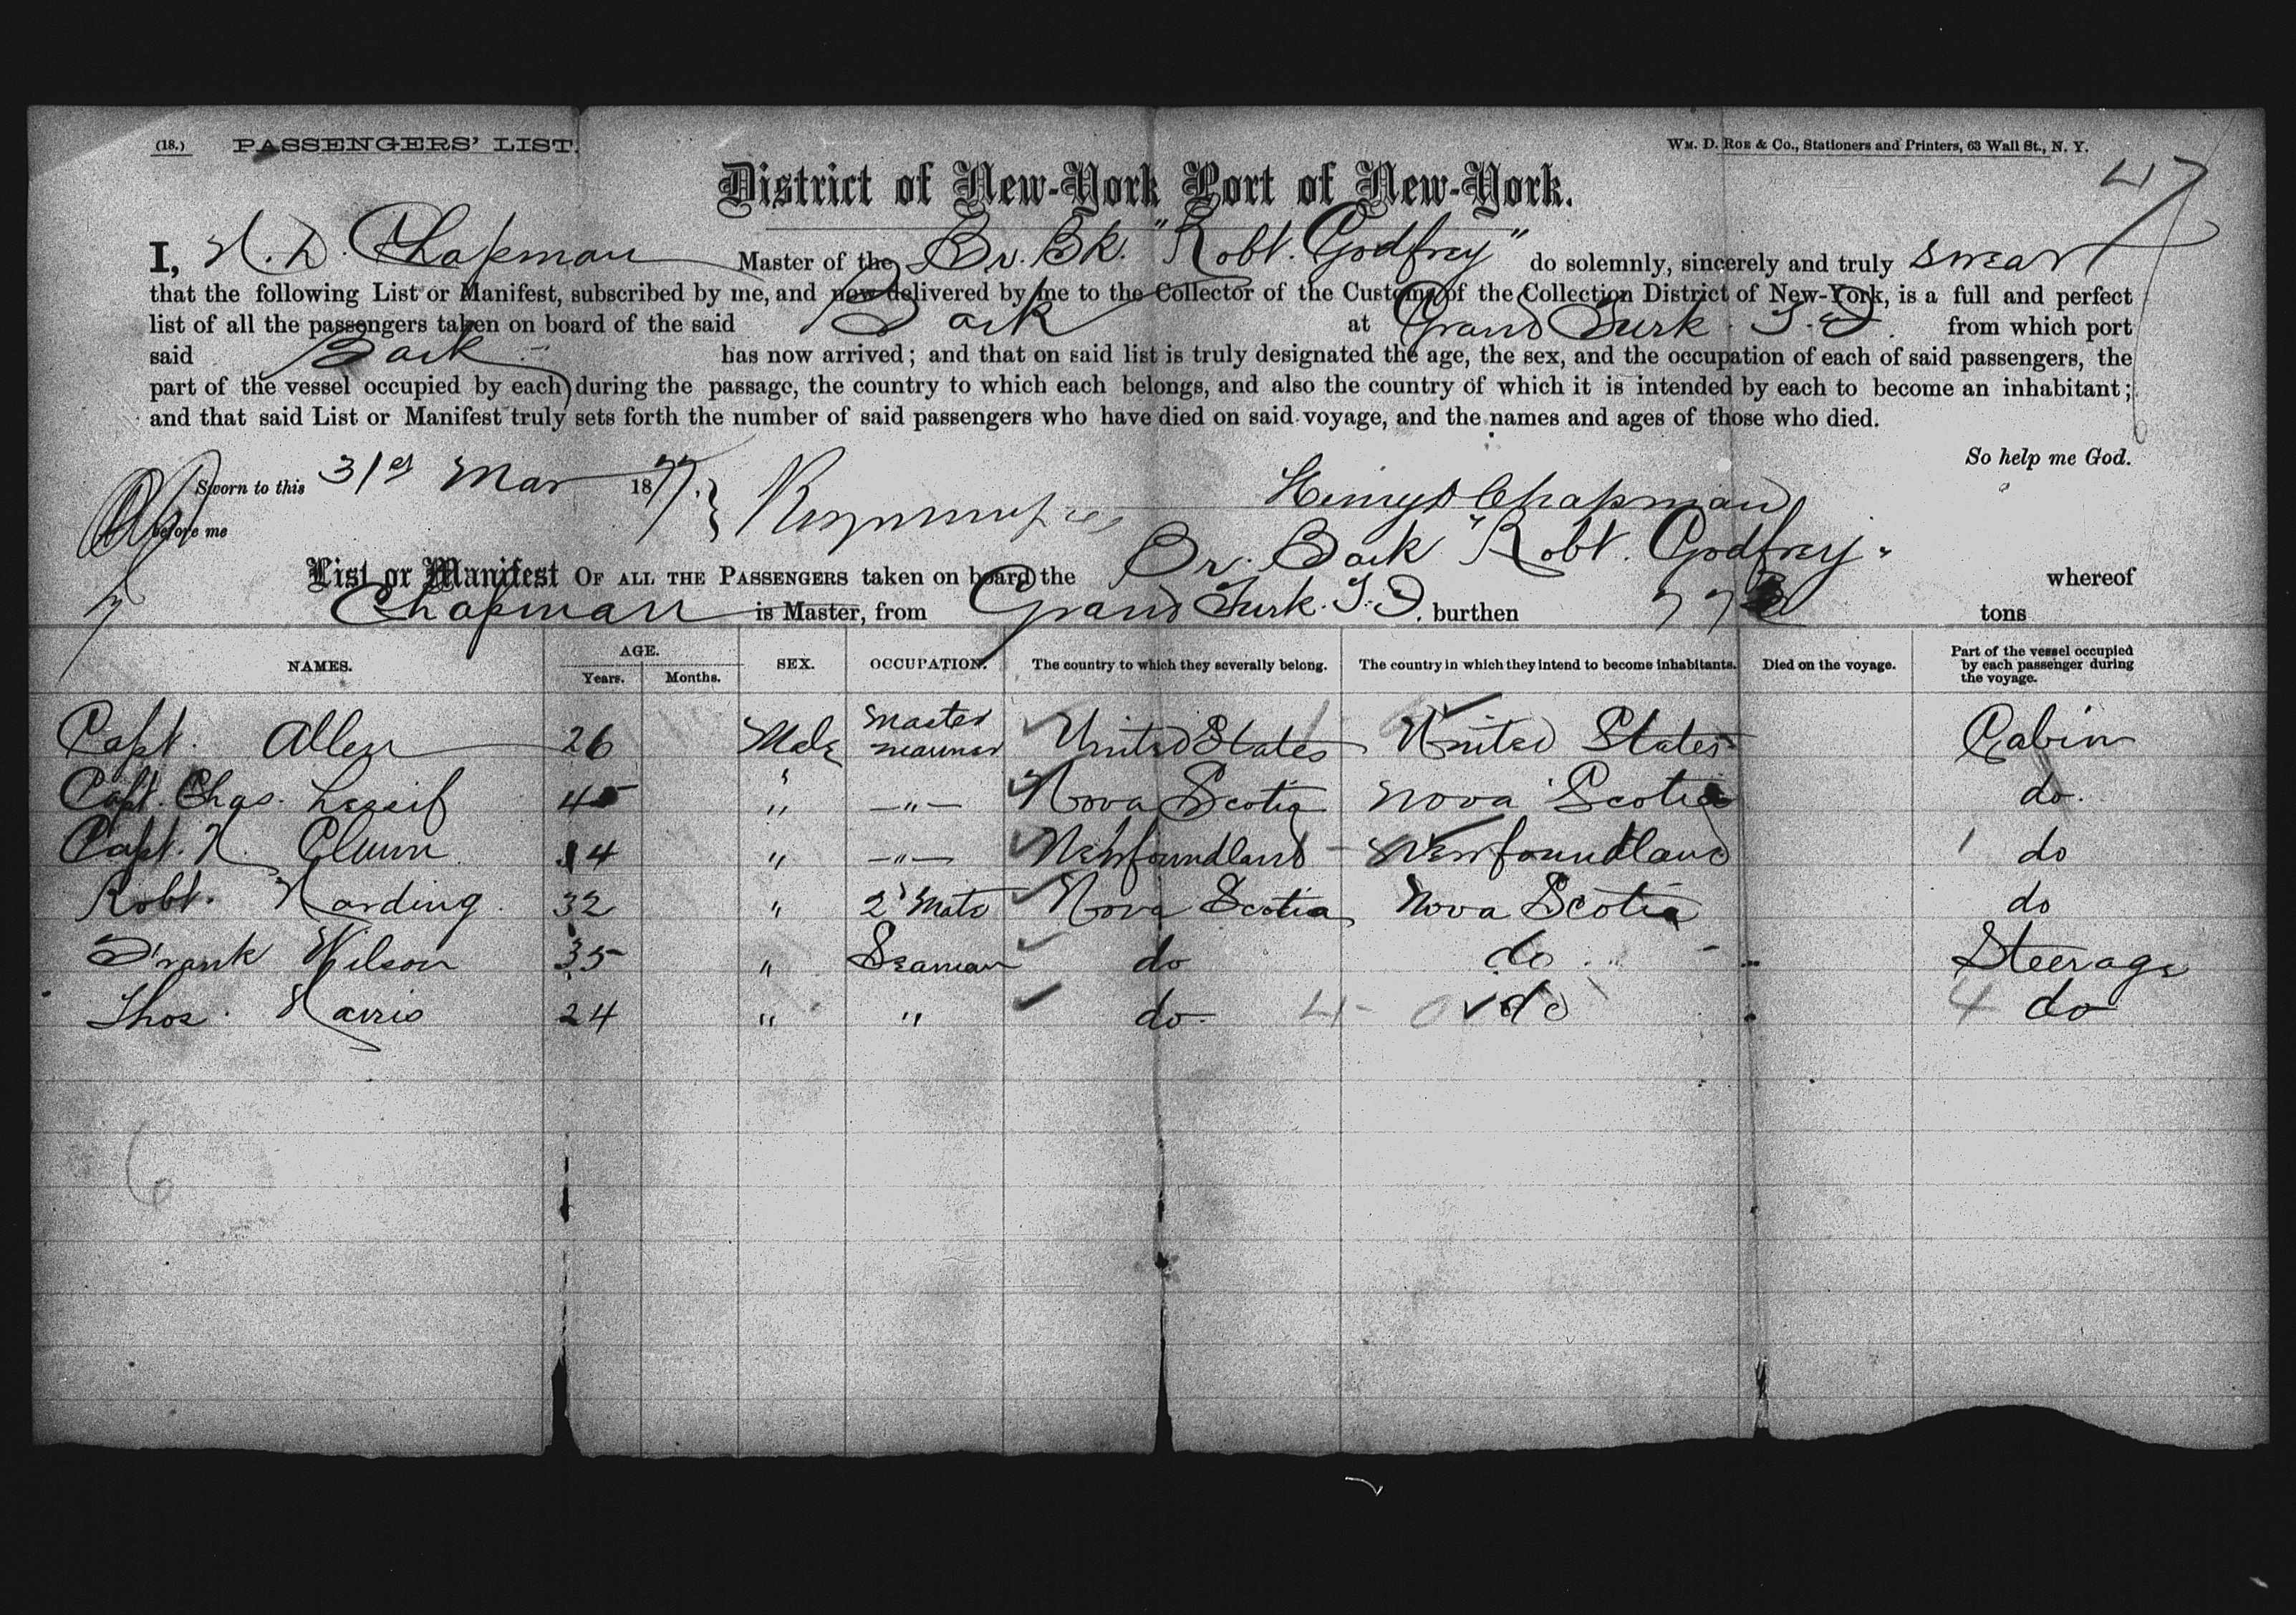 (18.) PASSENGERS' LIST.
WM. D. ROE & Co., Stationers and Printers, 63 Wall St., N. Y.
47
District of New-York Port of New-York.
I, H. D. Chapman Master of the Br. Bk. "Robt. Godfrey" do solemnly, sincerely and truly swear
that the following List or Manifest, subscribed by me, and now delivered by me to the Collector of the Customs of the Collection District of New-York, is a full and perfect
list of all the passengers taken on board of the said Bark at Grand Turk. T. I. from which port
said Bark has now arrived; and that on said list is truly designated the age, the sex, and the occupation of each of said passengers, the
part of the vessel occupied by each during the passage, the country to which each belongs, and also the country of which it is intended by each to become an inhabitant;
and that said List or Manifest truly sets forth the number of said passengers who have died on said voyage, and the names and ages of those who died.
So help me God.
Sworn to this 31st Mar 1877.
before me
Henry D Chapman
List or Manifest OF ALL THE PASSENGERS taken on board the Br. Bark "Robt. Godfrey" whereof
Chapman is Master, from Grand Turk. T. I. burthen tons
NAMES. AGE. Years. Months. SEX. OCCUPATION. The country to which they severally belong. The country in which they intend to become inhabitants. Died on the voyage. Part of the vessel occupied by each passenger during the voyage.
Capt. Allen 26 Male Master mariner United States United States Cabin
Capt. Chas. 45 " -"- Nova Scotia Nova Scotia do.
Capt. 4 " -"- Newfoundland Newfoundland 1 do
Robt. Harding 32 " 2d Mate Nova Scotia Nova Scotia do
Frank Wilson 35 " Seaman do do Steerage
Thos. Harris 24 " " do. 4 0 do 4 do
6